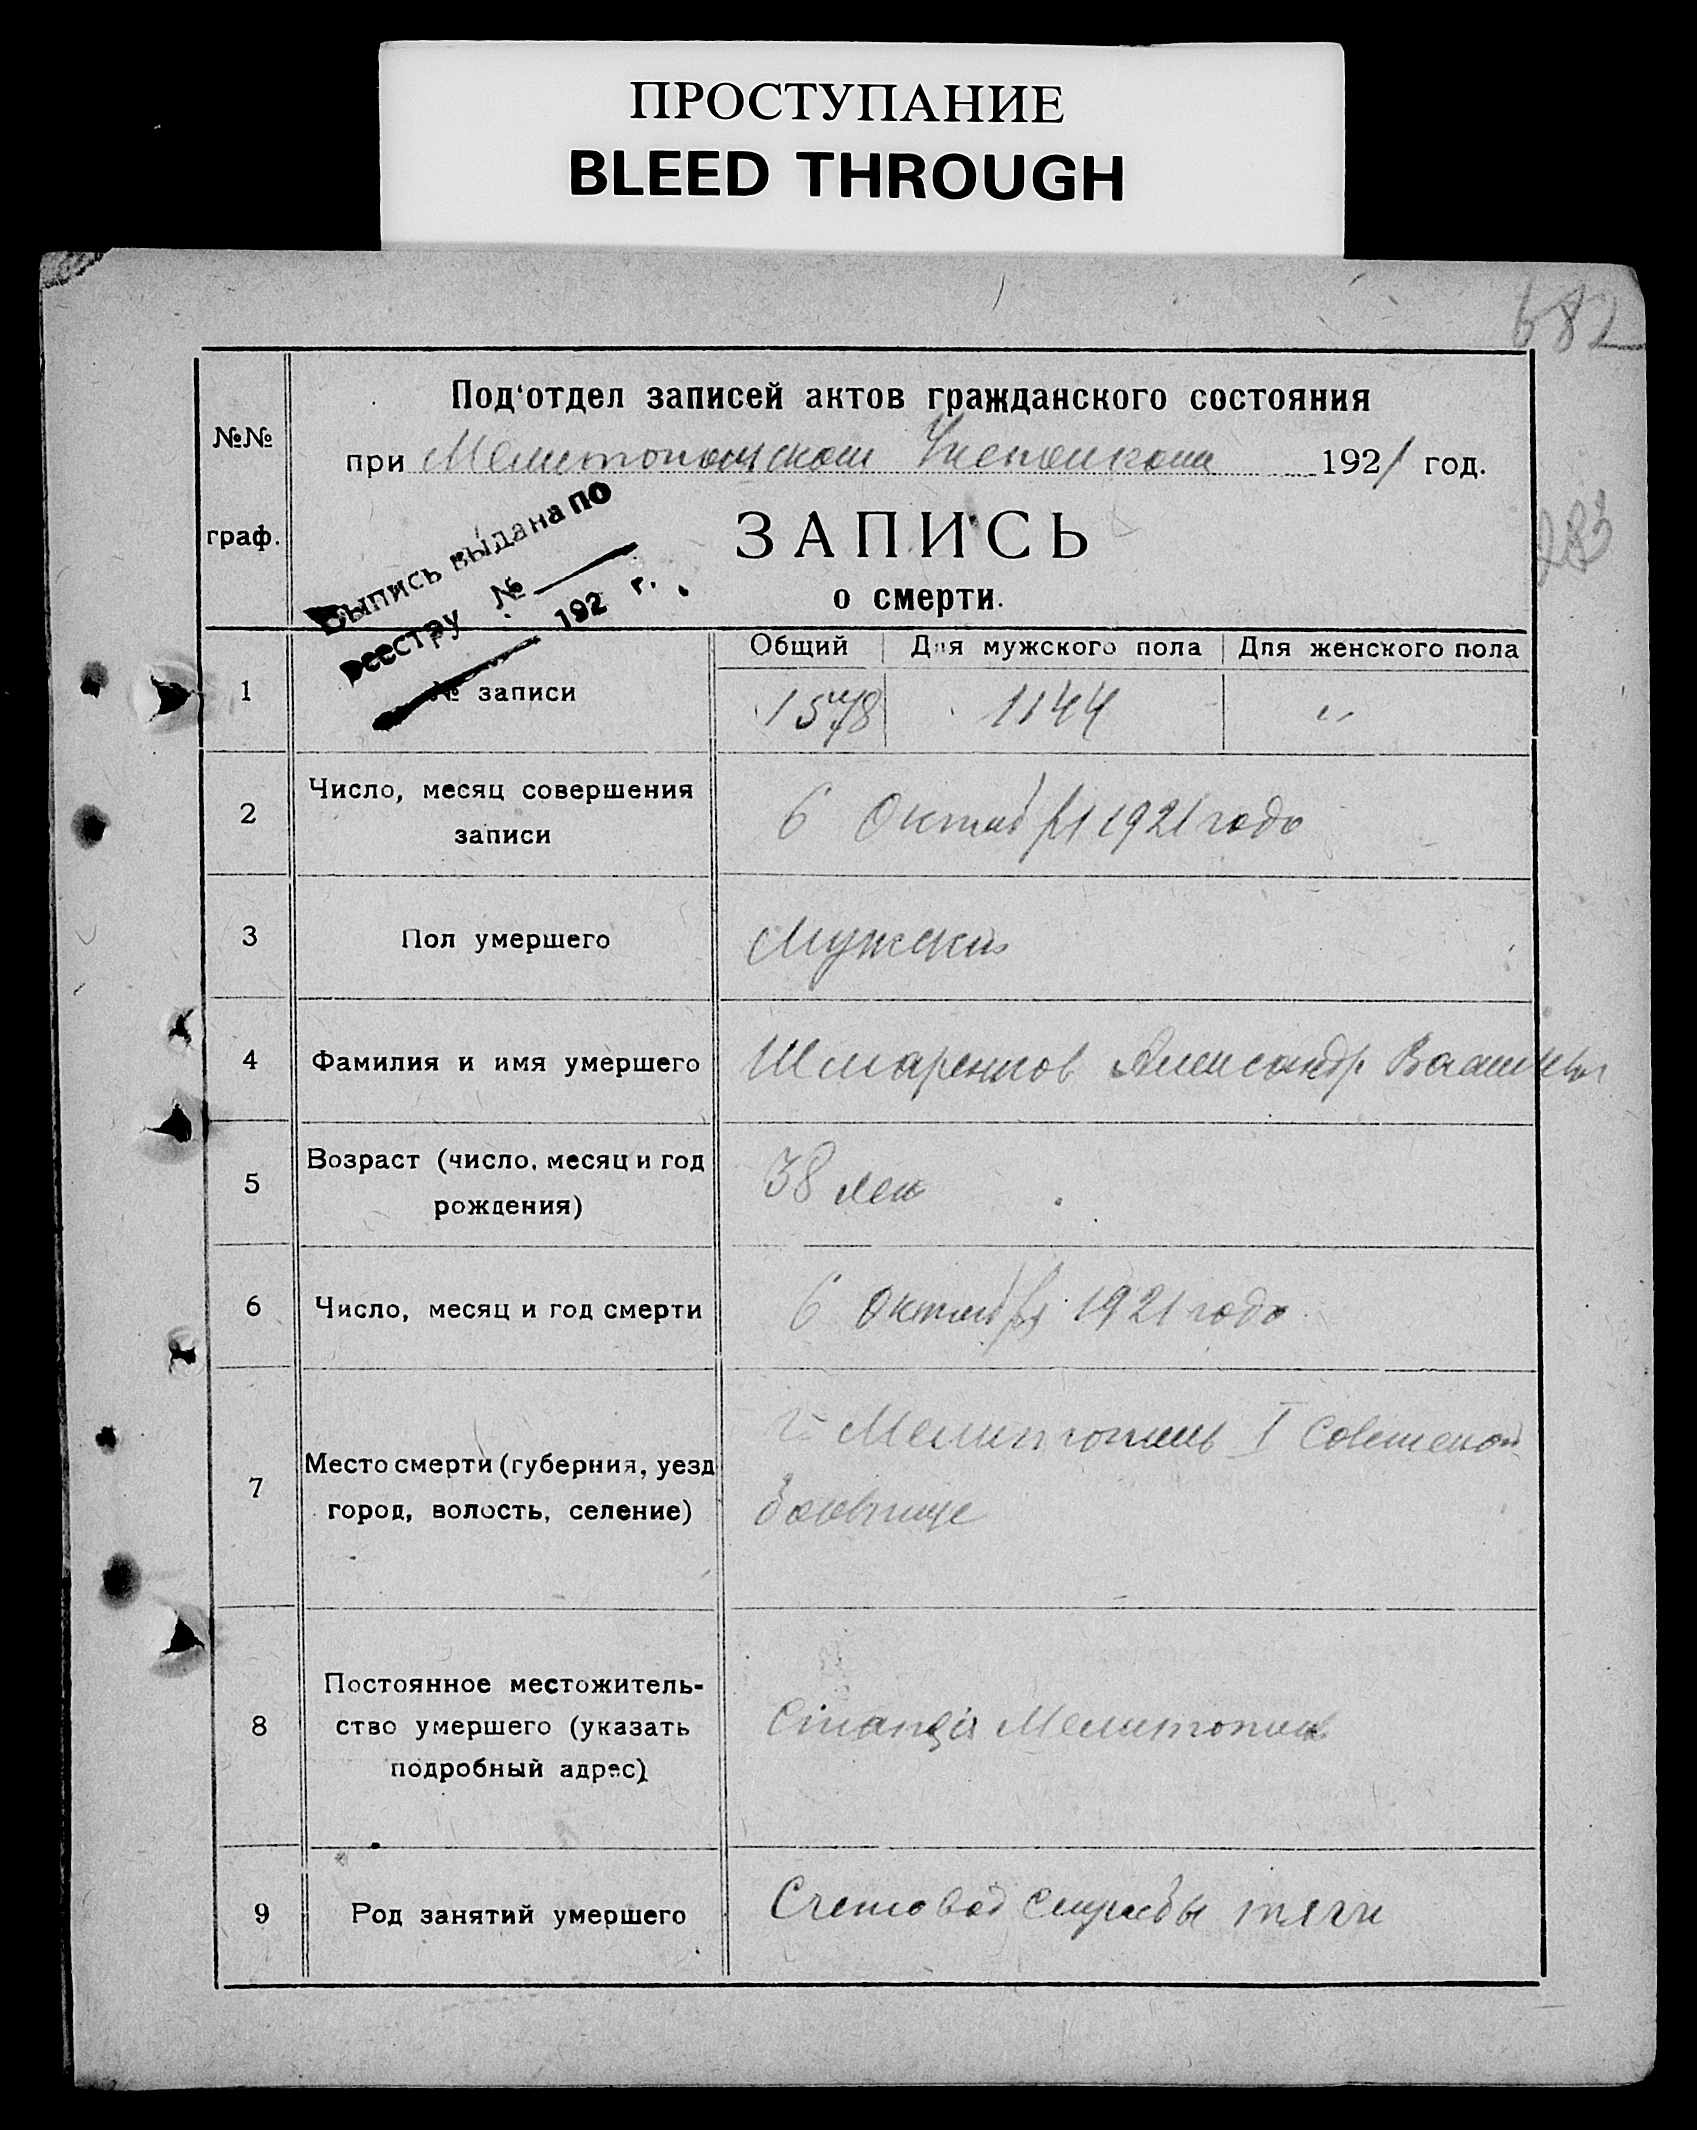 ПРОСТУПАНИЕ
BLEED THROUGH
682
Под‘отдел записей актов гражданского состояния
№№
при Мелитопольском 1921 год.
283
Выпись выдана по
реестру №
192 г.
ЗАПИСЬ
граф.
о смерти.
Общий Для мужского пола Для женского пола
1 № записи 1578 1144 "
2 Число, месяц совершения
записи
6 Октября 1921 года
3 Пол умершего Мужской
4 Фамилия и имя умершего Александр
5 Возраст (число, месяц и год
рождения)
38 лет
6 Число, месяц и год смерти 6 Октября 1921 года
7 Место смерти (губерния, уезд
город, волость, селение)
г. Мелитополь I Советской
больнице
8 Постоянное местожитель-
ство умершего (указать
подробный адрес)
Станция Мелитополь
9 Род занятий умершего Счетовод службы тяги